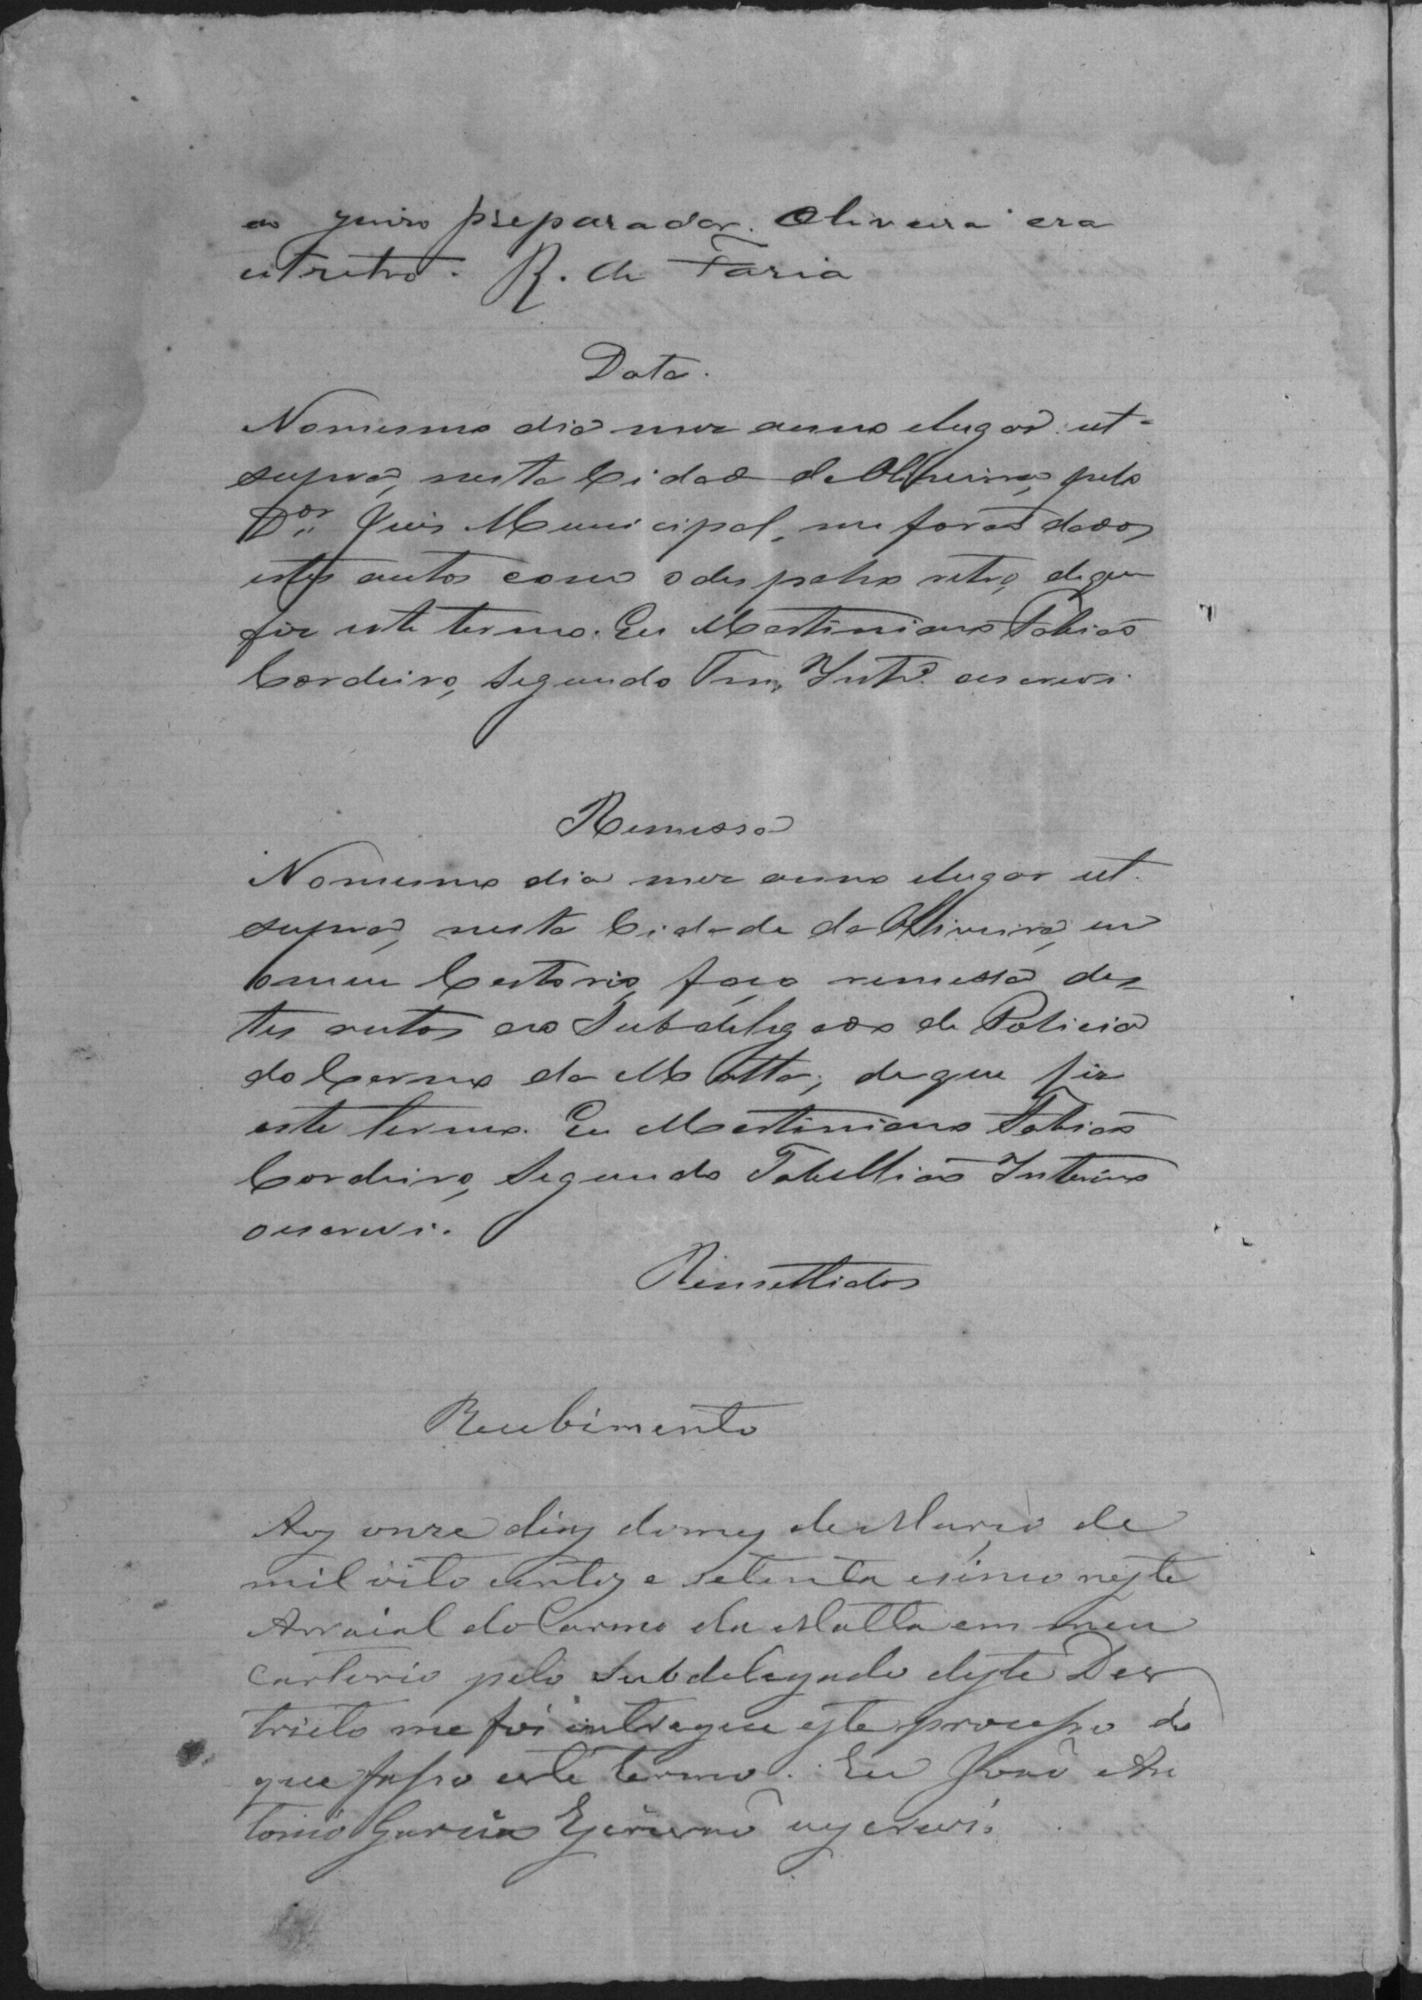 ao juizo preparador. Oliveira era
ut retro. R. de Faria
Data.
No mesmo dia mez anno elugar ut-
supra, nesta Cidade de Oliveira, pelo
Dor. Juis Municipal, me forão dados
estes autos com o despacho retro, deque
fiz este termo. Eu Martiniano Tobias
Cordeiro, Segundo Tam. Intº. oescrevi.
Remessa
No mesmo dia mez anno elugar ut.
supra, nesta Cidade de Oliveira, em
o meu Cartorio, faço remessa des-
tes autos ao Subdelegado de Policia
do Carmo da Matta, de que fiz
este termo. Eu Martiniano Tobias
Cordeiro, Segundo Tabellião Interino
oescrevi.
Remettidos
Recebimento
Aos onze dias do mes de Março de
mil oito centos e setenta esinco neste
Arraial do Carmo da Matta em meu
Cartorio pelo Subdelegado deste Des
tricto me foi intregue este processo do
que fasso este termo. Eu João An
tonio Garcia Escrivão oescrevi.